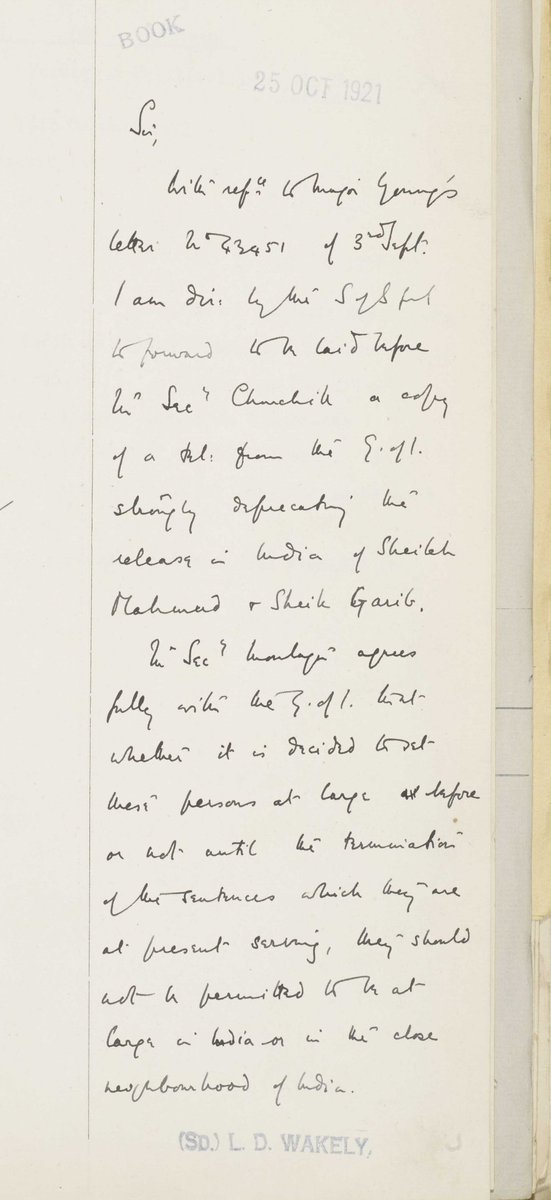 BOOK
25 OCT 1921
Sir,
With refce to Major Young's
letter No 43451 of 3rd Sept.
I am dir: by the S of S for I
to forward to be laid before
Mr Secy Churchill a copy
of a tel: from the G. of I.
strongly deprecating the
release in India of Sheikh
Mahmud & Sheik Garib.
Mr Secy Montagu agrees
fully with the G. of I. that
whether it is decided to set
these persons at large before
or not until the termination
of the sentences which they are
at present serving, they should
not be permitted to be at
large in India or in the close
neighbourhood of India.
(SD.) L. D. WAKELY,